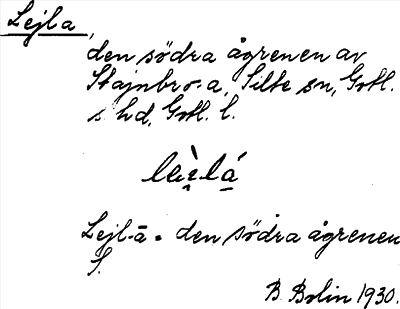 Lejl a,
den södra ågrenen av
Stajnbro-a, Silte sn, Gotl.
s. hd, Gotl. l.
Lejl-ā = den södra ågrenen
S.
B. Bolin 1930.